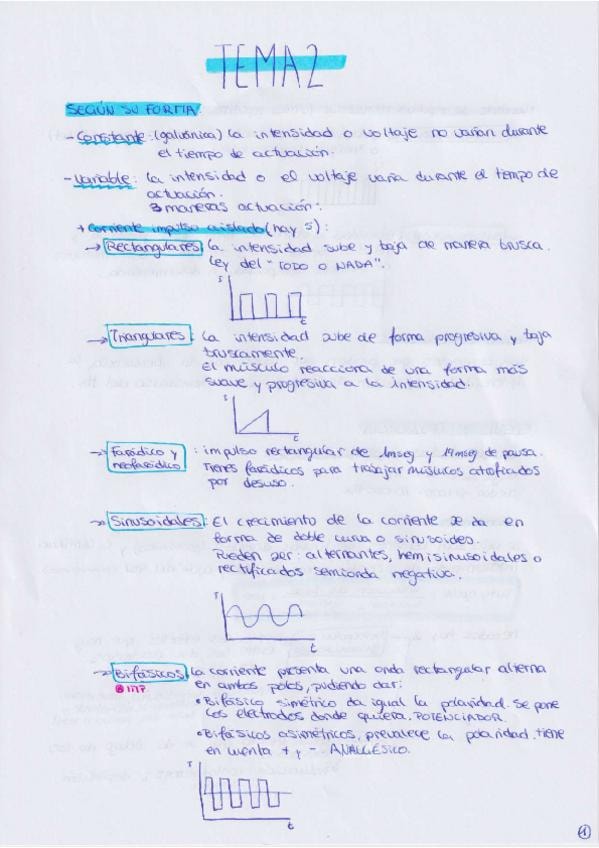 TEMA 2
SEGÚN SU FORMA:
- Constante: (galvánica) la intensidad o voltaje no varían durante
el tiempo de actuación.
- Variable: la intensidad o el voltaje varía durante el tiempo de
actuación.
3 maneras actuación:
+ Corriente impulso aislado (hay 5):
→ Rectangulares: la intensidad sube y baja de manera brusca.
Ley del "TODO O NADA".
I
t
→ Triangulares: La intensidad sube de forma progresiva y baja
bruscamente.
El músculo reacciona de una forma más
suave y progresiva a la intensidad.
t
→ Farádico y : impulso rectangular de 1mseg y 19mseg de pausa.
neofarádico Trenes farádicos para trabajar músculos atrofiados
por desuso.
→ Sinusoidales: El crecimiento de la corriente se da en
forma de doble curva o sinusoides.
Pueden ser: alternantes, hemisinusoidales o
rectificados semionda negativa.
I
t
→ Bifásicos: la corriente presenta una onda rectangular alterna
IMP en ambos polos, pudiendo dar:
• Bifásico simétrico da igual la polaridad. Se pone
los electrodos donde quiera. POTENCIADOR.
• Bifásicos asimétricos, prevalece la polaridad. tiene
en cuenta + y -. ANALGÉSICO.
I
t
1